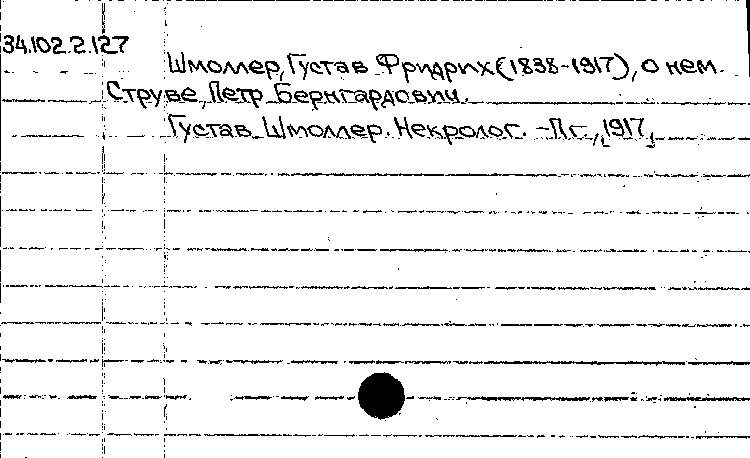 34.102.2.127
Шмоллер, Густав Фридрих (1838-1917), о нем.
Струве, Петр Бернгардович.
Густав Шмоллер. Некролог. - Пг., [1917]